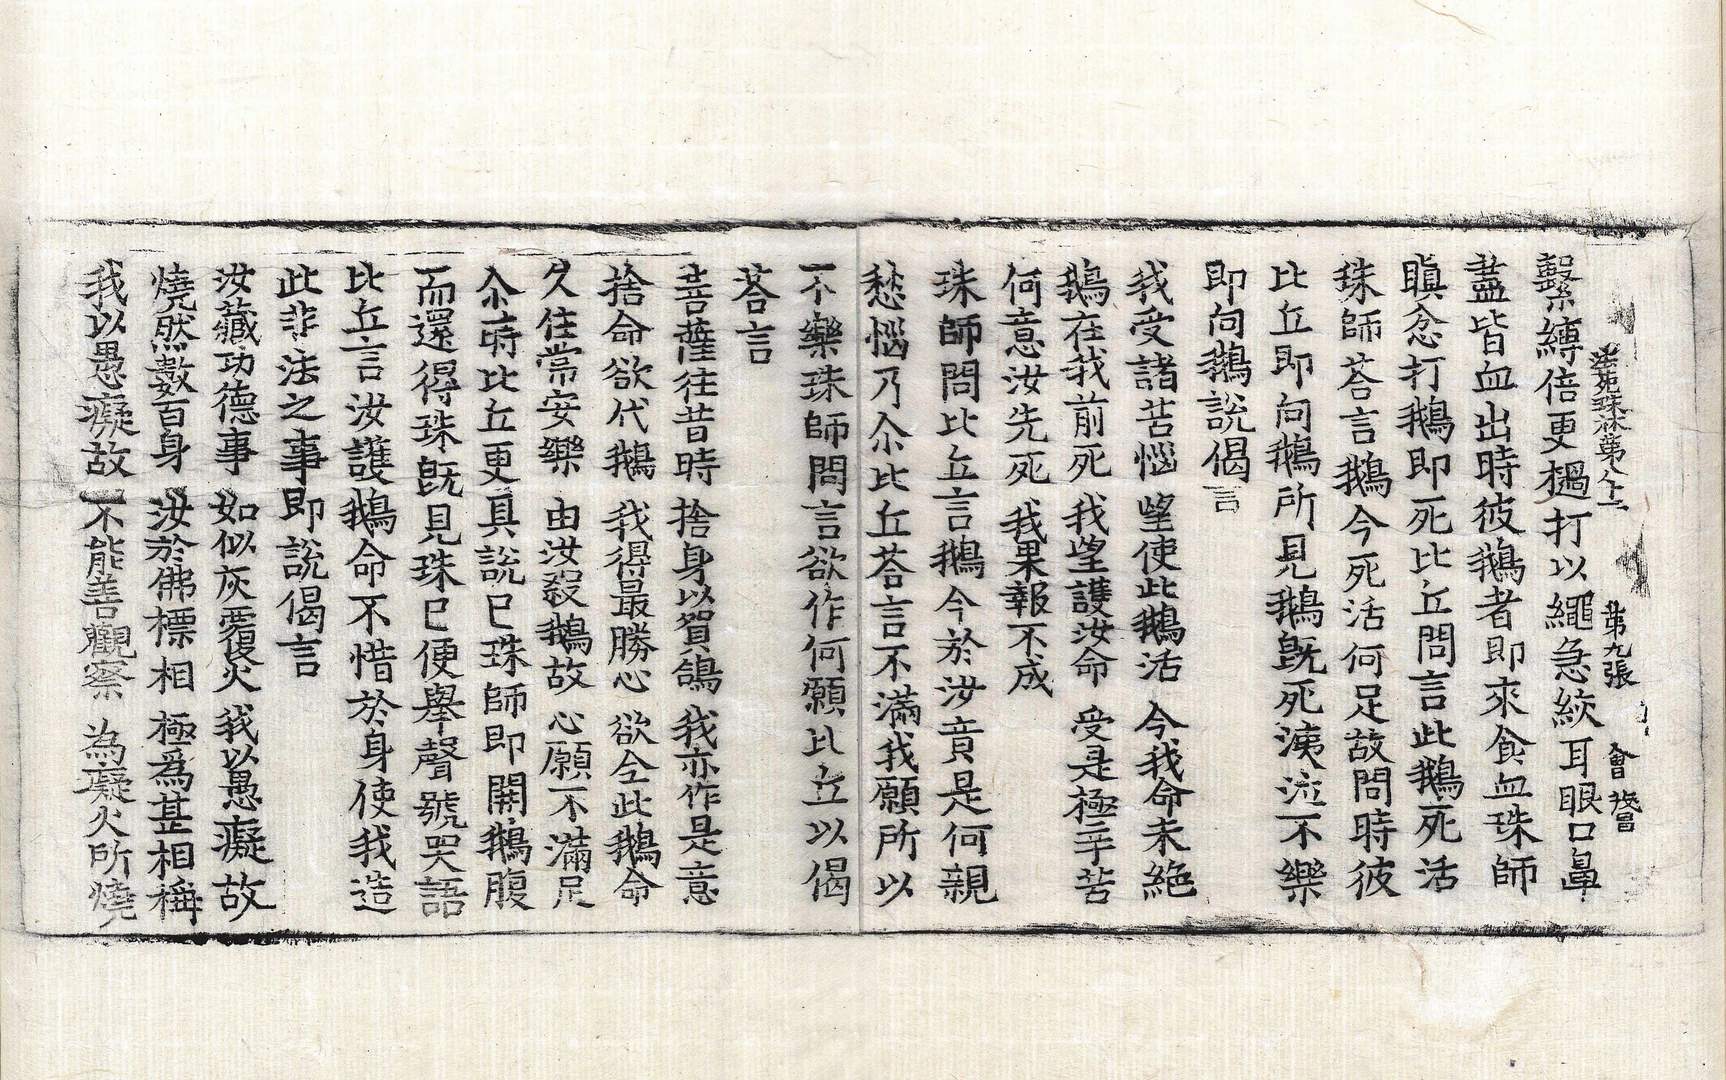 法苑珠林第八十二　第九張　會
繫縛倍更檛打以繩急絞耳眼口鼻
盡皆血出時彼鵝者即來飡血珠師
瞋忿打鵝即死比丘問言此鵝死活
珠師荅言鵝今死活何足故問時彼
比丘即向鵝所見鵝旣死洟泣不樂
即向鵝說偈言
我受諸苦惱　望使此鵝活　今我命未絶
鵝在我前死　我望護汝命　受是極辛苦
何意汝先死　我果報不成
珠師問比丘言鵝今於汝竟是何親
愁惱乃尒比丘荅言不滿我願所以
不樂珠師問言欲作何願比丘以偈
荅言
菩薩往昔時　捨身以貿鴿　我亦作是意
捨命欲代鵝　我得最勝心　欲全此鵝命
久住常安樂　由汝殺鵝故　心願不滿足
尒時比丘更具說已珠師即開鵝腹
而還得珠旣見珠已便舉聲號哭語
比丘言汝護鵝命不惜於身使我造
此非法之事即說偈言
汝藏功德事　如似灰覆火　我以愚癡故
燒然數百身　汝於佛標相　極爲甚相稱
我以愚癡故　不能善觀察　為癡火所燒